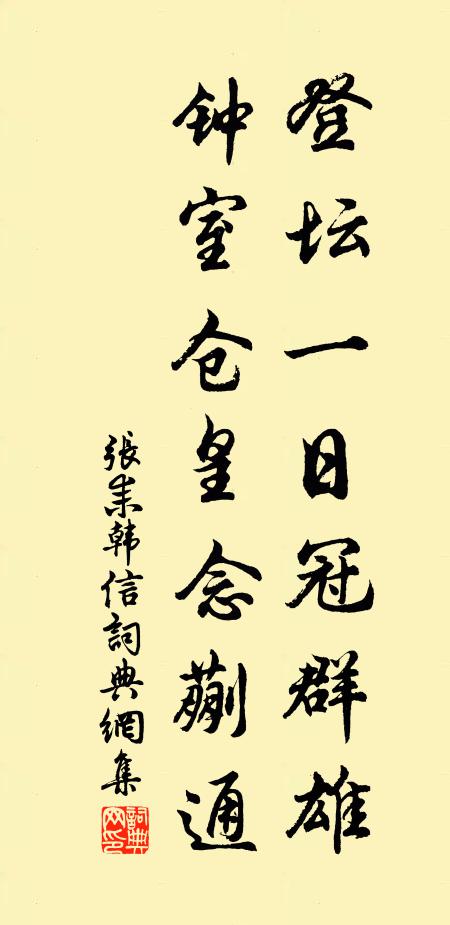 登坛一日冠群雄
钟室仓皇念蒯通
張耒韩信詞典網集
詞典网印